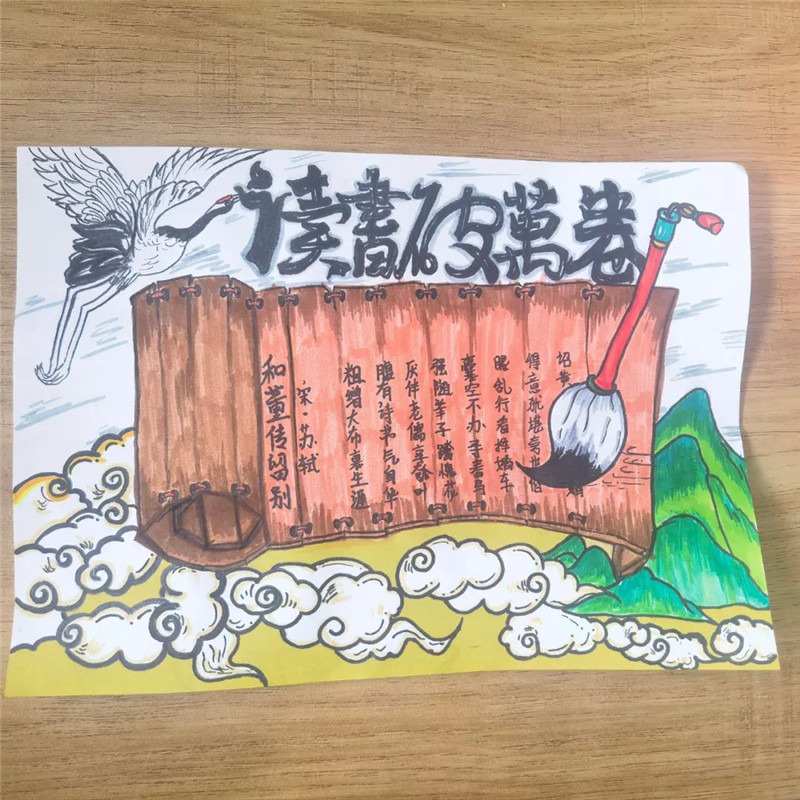 读書破萬卷
和董传留别
宋·苏轼
粗缯大布裹生涯
腹有诗书气自华
厌伴老儒烹瓠叶
强随举子踏槐花
囊空不办寻春马
眼乱行看择婿车
得意犹堪夸世俗
诏黄